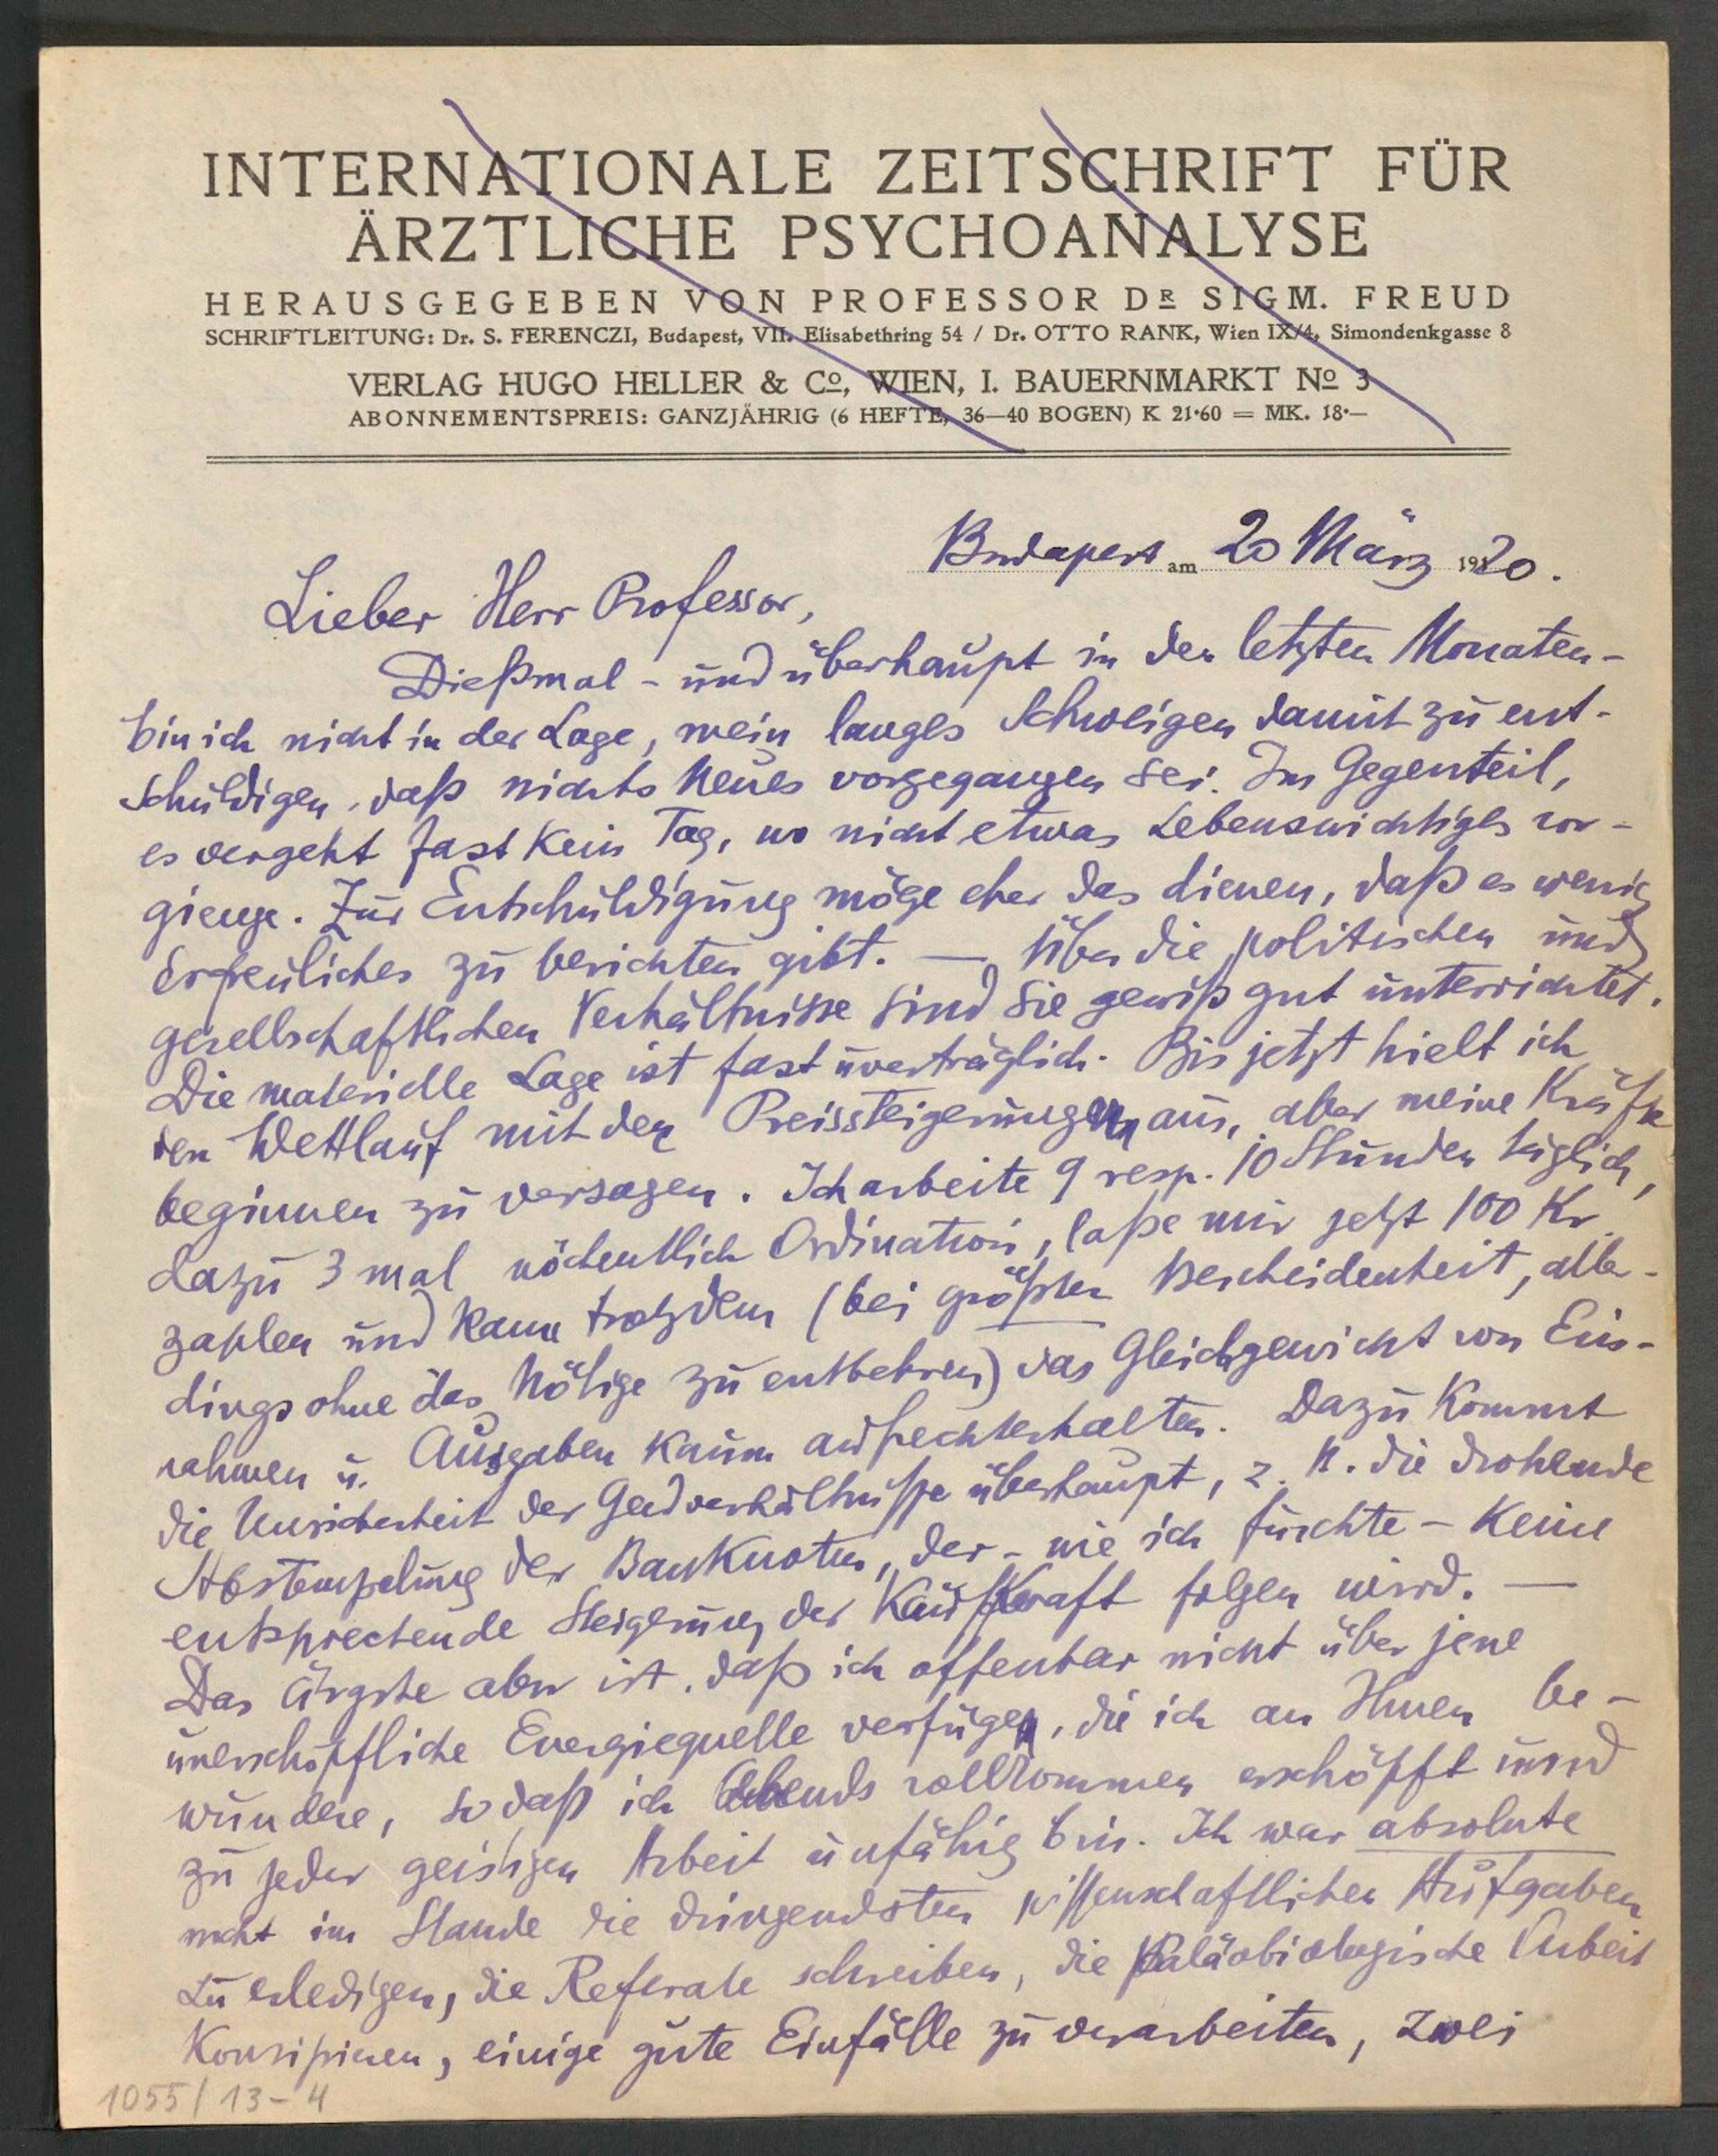 INTERNATIONALE ZEITSCHRIFT FÜR
ÄRZTLICHE PSYCHOANALYSE
HERAUSGEGEBEN VON PROFESSOR DR SIGM. FREUD
SCHRIFTLEITUNG: Dr. S. FERENCZI, Budapest, VII. Elisabethring 54 / Dr. OTTO RANK, Wien IX/4, Simondenkgasse 8
VERLAG HUGO HELLER & Co, WIEN, I. BAUERNMARKT No 3
ABONNEMENTSPREIS: GANZJÄHRIG (6 HEFTE, 36—40 BOGEN) K 21·60 = MK. 18·—
Budapest am 20 März 1920.
Lieber Herr Professor,
Dießmal - und überhaupt in den letzten Monaten -
bin ich nicht in der Lage, mein langes Schweigen damit zu ent-
schuldigen, daß nichts Neues vorgegangen sei. Im Gegenteil,
es vergeht fast kein Tag, wo nicht etwas Lebenswichtiges vor-
gienge. Zur Entschuldigung möge eher das dienen, daß es wenig
Erfreuliches zu berichten gibt. — Über die politischen und
gesellschaftlichen Verhältnisse sind Sie gewiß gut unterrichtet.
Die materielle Lage ist fast unerträglich. Bis jetzt hielt ich
den Wettlauf mit den Preissteigerungen aus, aber meine Kräfte
beginnen zu versagen. Ich arbeite 9 resp. 10 Stunden täglich,
dazu 3 mal wöchentlich Ordination, laße mir jetzt 100 Kr
zahlen und kann trotzdem (bei größter Bescheidenheit, aller-
dings ohne das Nötige zu entbehren) das Gleichgewicht von Ein-
nahmen u. Ausgaben kaum aufrechterhalten. Dazu kommt
die Unsicherheit der Geldverhältniße überhaupt, z. B. die drohende
Abstempelung der Banknoten, der - wie ich fürchte - keine
entsprechende Steigerung der Kaufkraft folgen wird. —
Das Ärgste aber ist, daß ich offenbar nicht über jene
unerschöpfliche Energiequelle verfüge, die ich an Ihnen be-
wundere, so daß ich Abends vollkommen erschöpft und
zu jeder geistigen Arbeit unfähig bin. Ich war absolute
nicht im Stande die dringendsten wißenschaftlichen Aufgaben
zu erledigen, die Referate schreiben, die Paläobiologische Arbeit
Konsipieren, einige gute Einfälle zu verarbeiten, zwei
1055/13-4